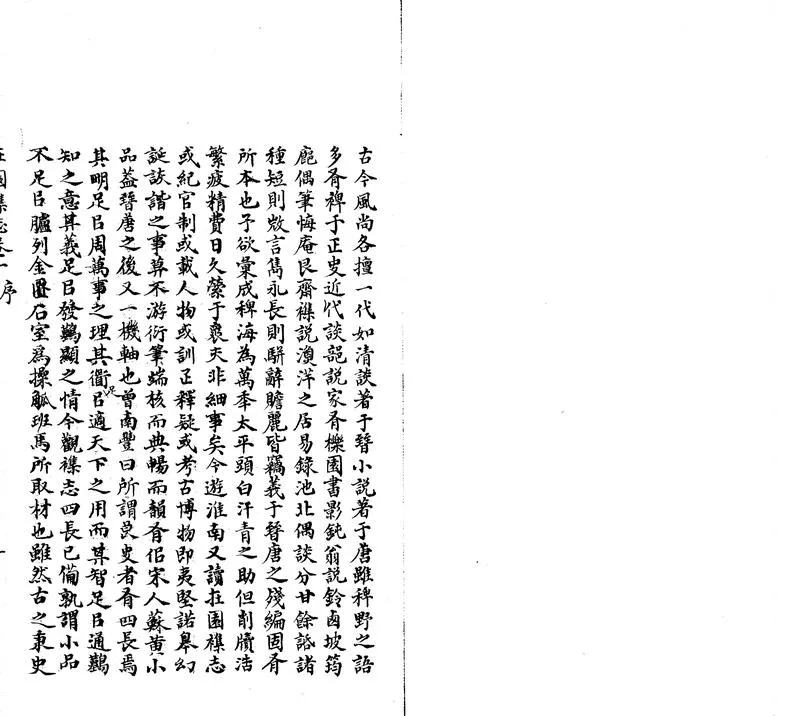 古今風尚各擅一代如清談著于晉小說著于唐雖稗野之語
多有裨于正史近代談部說家有櫟園書影鈍翁說鈴西坡筠
廊偶筆悔庵艮齋襍說漁洋之居易錄池北偶談分甘餘話諸
種短則欬言雋永長則駢辭贍麗皆竊義于晉唐之殘編固有
所本也予欲彙成稗海為萬秊太平頭白汗青之助但削牘浩
繁疲精費日久縈于襄夫非細事矣今遊淮南又讀在園襍志
或紀官制或載人物或訓正釋疑或考古博物即夷堅諾皋幻
誕詼諧之事莫不游衍筆端核而典暢而韻有佀宋人蘇黃小
品蓋晉唐之後又一機軸也曾南豐曰所謂良史者有四長焉
其明足㠯周萬事之理其衟足㠯適天下之用而其智足㠯通難
知之意其義足㠯發難顯之情今觀襍志四長已備孰謂小品
不足㠯臚列金匱石室為操觚班馬所取材也雖然古之秉史
在園集志卷一 序 一